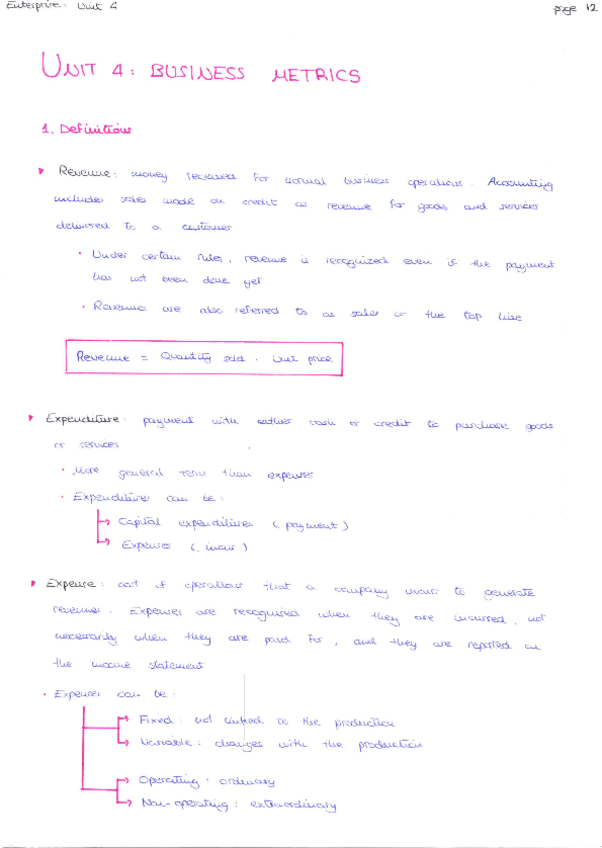 Enterprise: Unit 4
page 12
UNIT 4: BUSINESS METRICS
1. Definitions
Revenue: money received for normal business operations. Accounting
includes sales made on credit as revenue for goods and services
delivered to a customer
· Under certain rules, revenue is recognized even if the payment
has not even done yet
· Revenues are also referred to as sales or the top line
Revenue = Quantity sold · Unit price
Expenditure: payment with either cash or credit to purchase goods
or services
· More general term than expenses
· Expenditures can be:
Capital expenditures (payment)
Expenses (incur)
Expense: cost of operations that a company incurs to generate
revenues. Expenses are recognised when they are incurred, not
necessarily when they are paid for, and they are reported on
the income statement
· Expenses can be:
Fixed: not linked to the production
Variable: changes with the production
Operating: ordinary
Non-operating: extraordinary